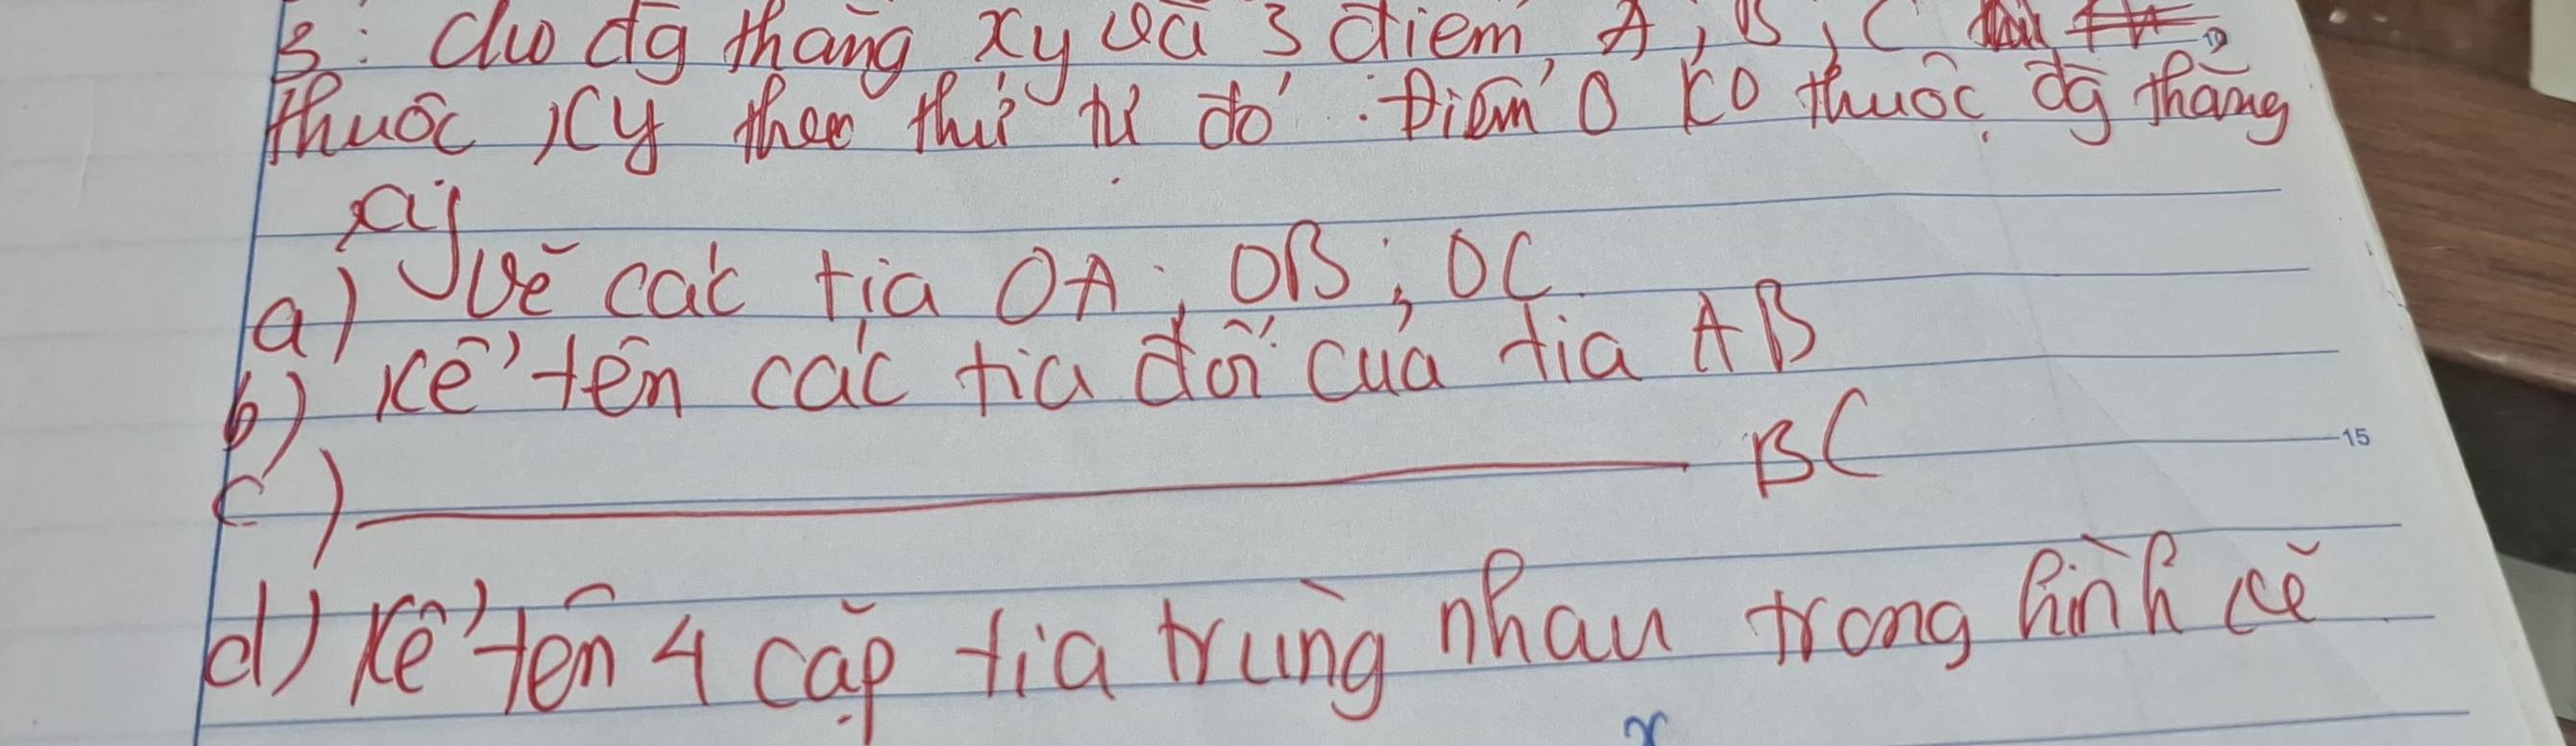 3: Cho đg thẳng xy và 3 điểm A, B, C
thuộc xy theo thứ tự đó. Điểm O ko thuộc đg thẳng
xy
a) Vẽ các tia OA; OB; OC
b) Kể tên các tia đối của tia AB
15
c) ——— BC
d) Kể tên 4 cặp tia trùng nhau trong hình vẽ
x